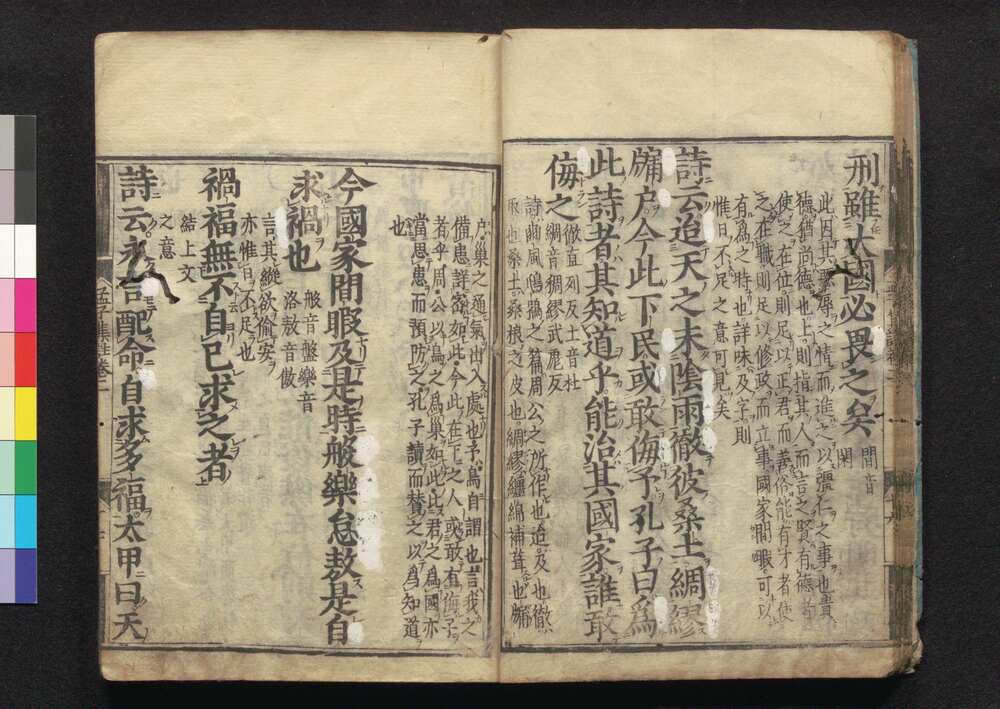 刑雖大國必畏之矣
間音
閑
此因其惡辱之情而進之以彊仁之事也貴
德猶尚德也士則指其人而言之賢有德者
使之在位則足以正君而善俗能有才者使
之在職則足以修政而立事國家閒暇可以
有爲之時也詳味及字則
惟日不足之意可見矣
詩云迨天之未陰雨徹彼桑土綢繆
牖戶今此下民或敢侮予孔子曰爲
此詩者其知道乎能治其國家誰敢
侮之
徹直列反土音杜
綢音稠繆武彪反
詩豳風鴟鴞之篇周公之所作也迨及也徹
取也桑土桑根之皮也綢繆纏綿補葺也牖
戶巢之通氣出入處也予鳥自謂也言我之
備患詳密如此今此在下之人或敢有侮予
者乎周公以鳥之爲巢如此比君之爲國亦
當思患而預防之孔子讀而贊之以爲知道
也
今國家閒暇及是時般樂怠敖是自
求禍也
般音盤樂音
洛敖音傲
言其縱欲偷安
亦惟日不足也
禍福無不自己求之者
結上文
之意
詩云永言配命自求多福太甲曰天
孟子集註卷二